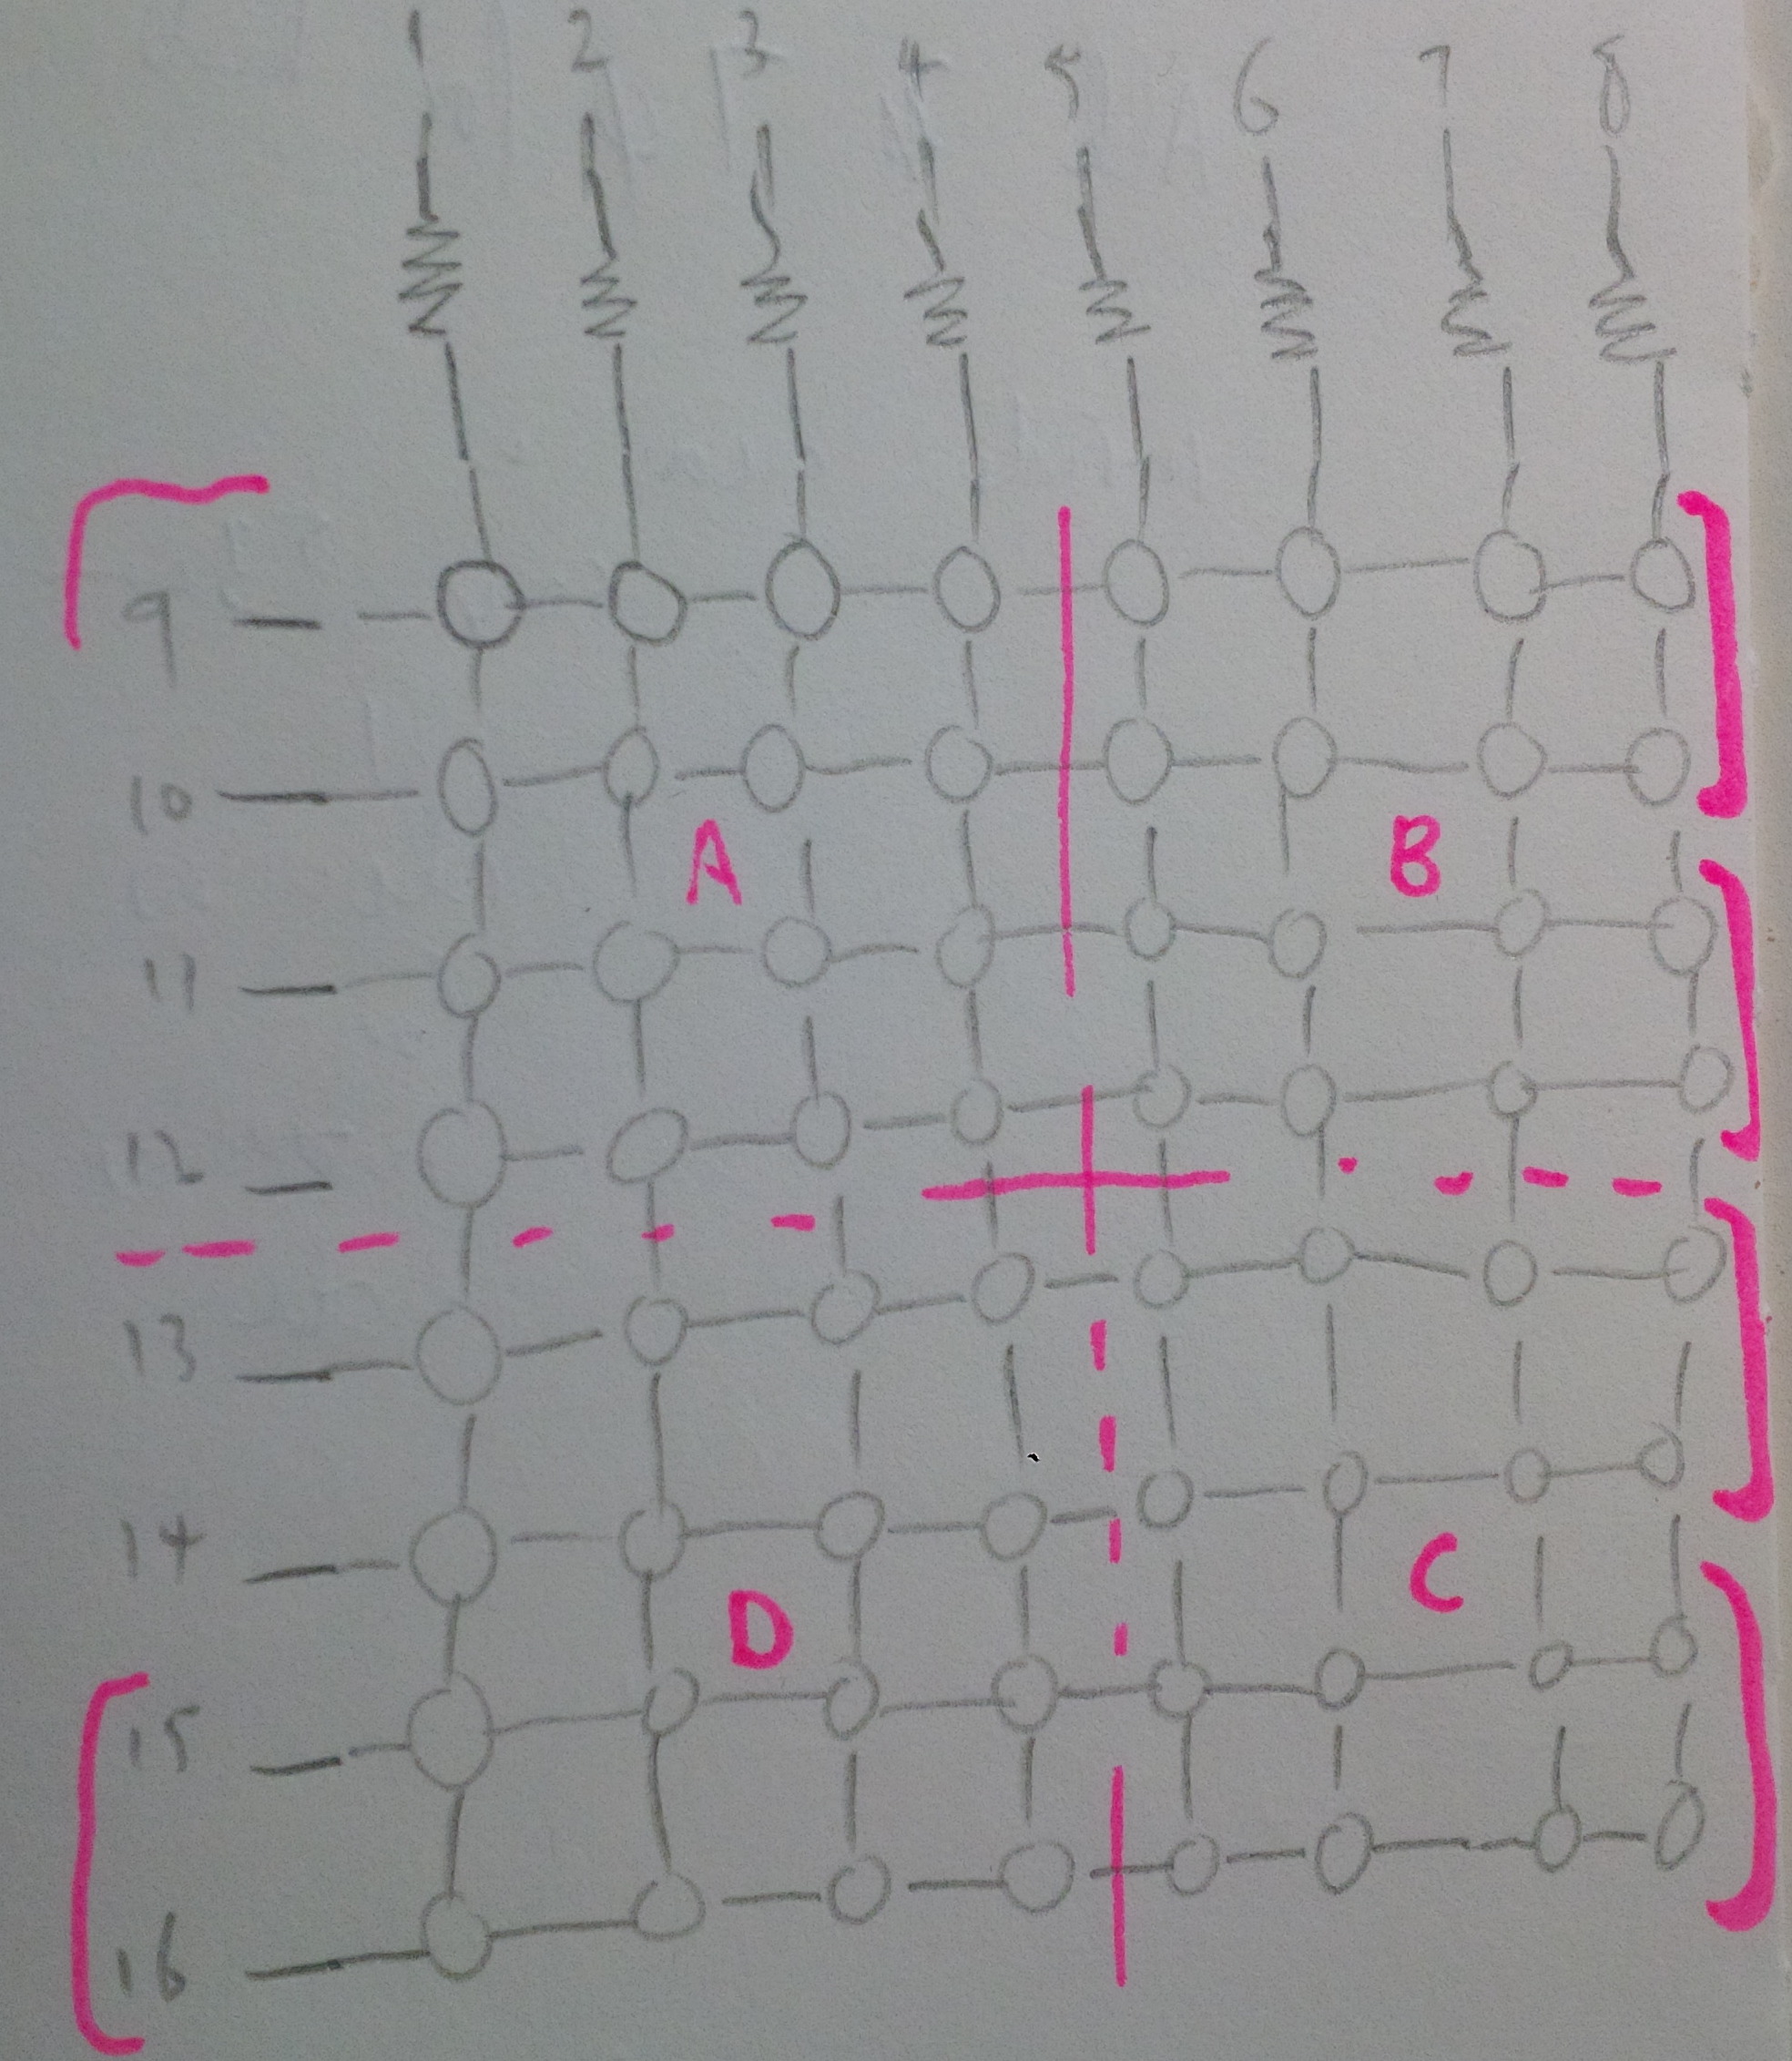 1 2 3 4 5 6 7 8
9
10
A B
11
12
13
14
D C
15
16